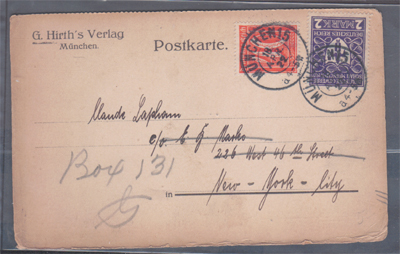 G. Hirth's Verlag
München.
Postkarte.
2 MARK 2
DEUTSCHES REICH
MÜNCHEN 15
MÜNCHEN
Claude Lapham
c/o E G Marks
226 West 46th Street
Box 131
in New-York-City